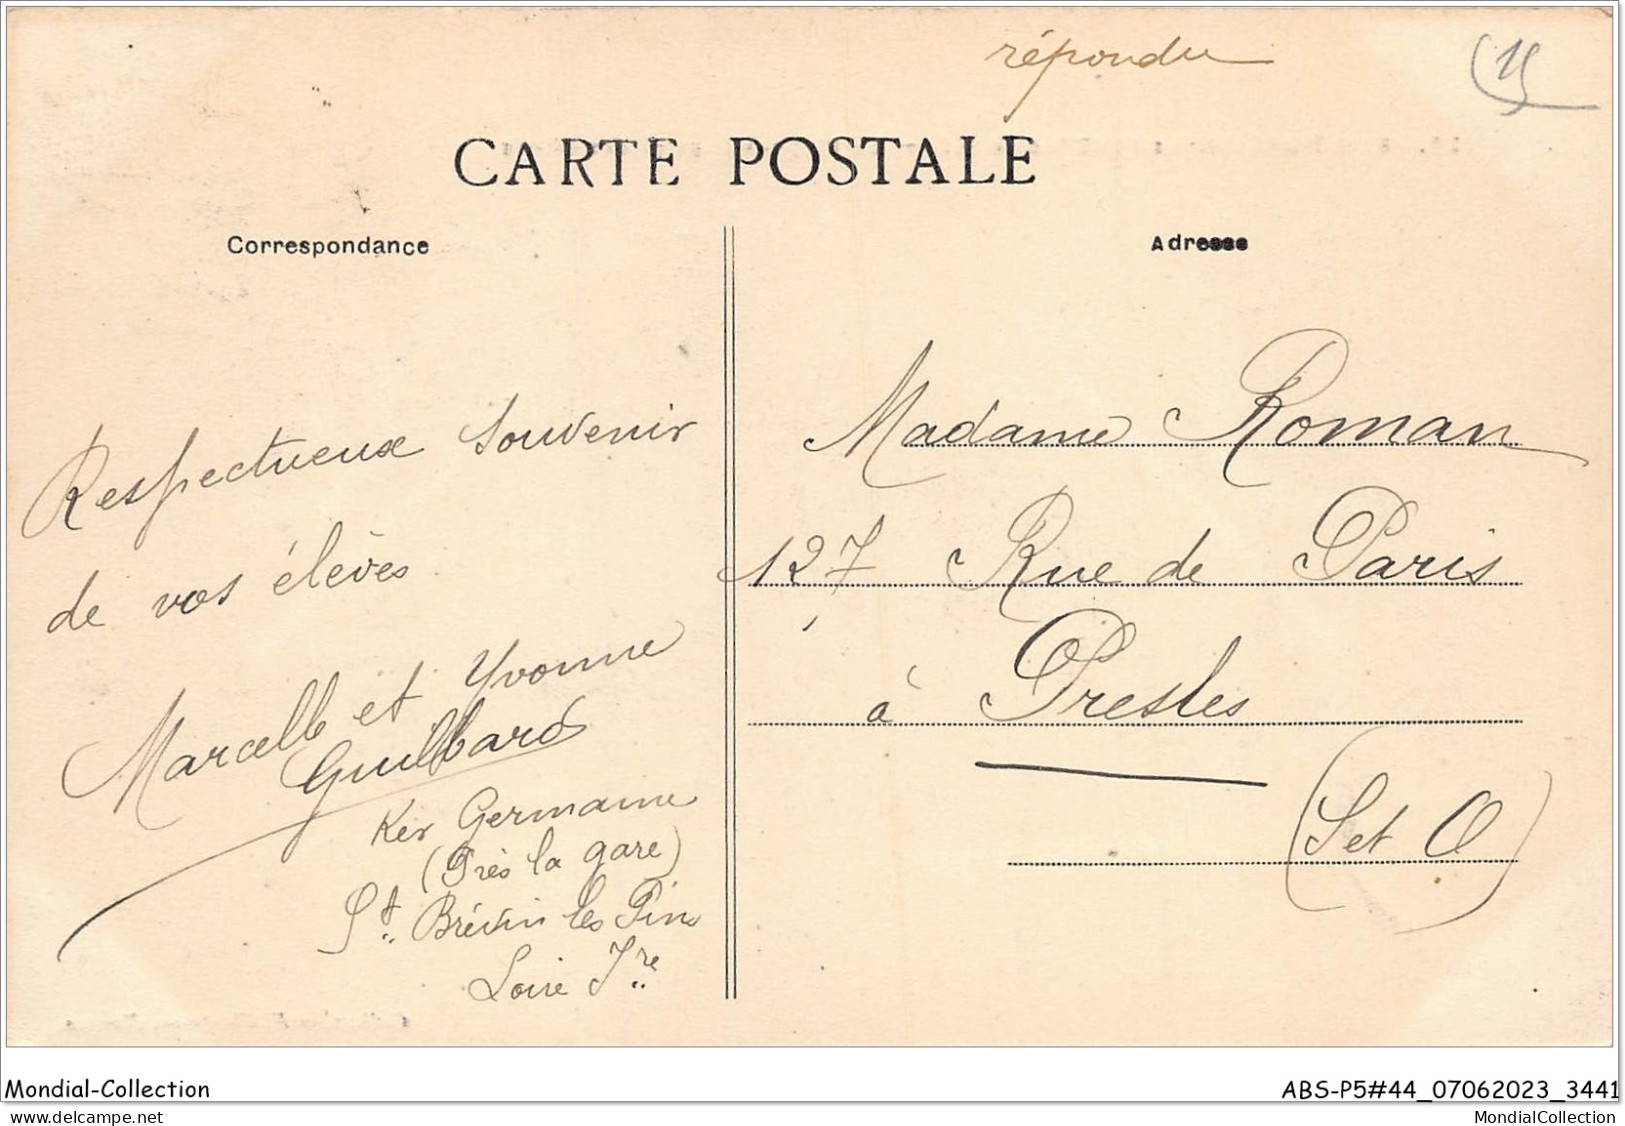 répondu
15
CARTE POSTALE
Correspondance
Adresse
Respectueux souvenir
de vos élèves
Marcelle et Yvonne
Guilbard
Ker Germaine
(Près la gare)
St. Brévin les Pins
Loire Fre
Madame Roman
127 Rue de Paris
à Presles
(S et O)
Mondial-Collection
ABS-P5#44_07062023_3441
www.delcampe.net
MondialCollection